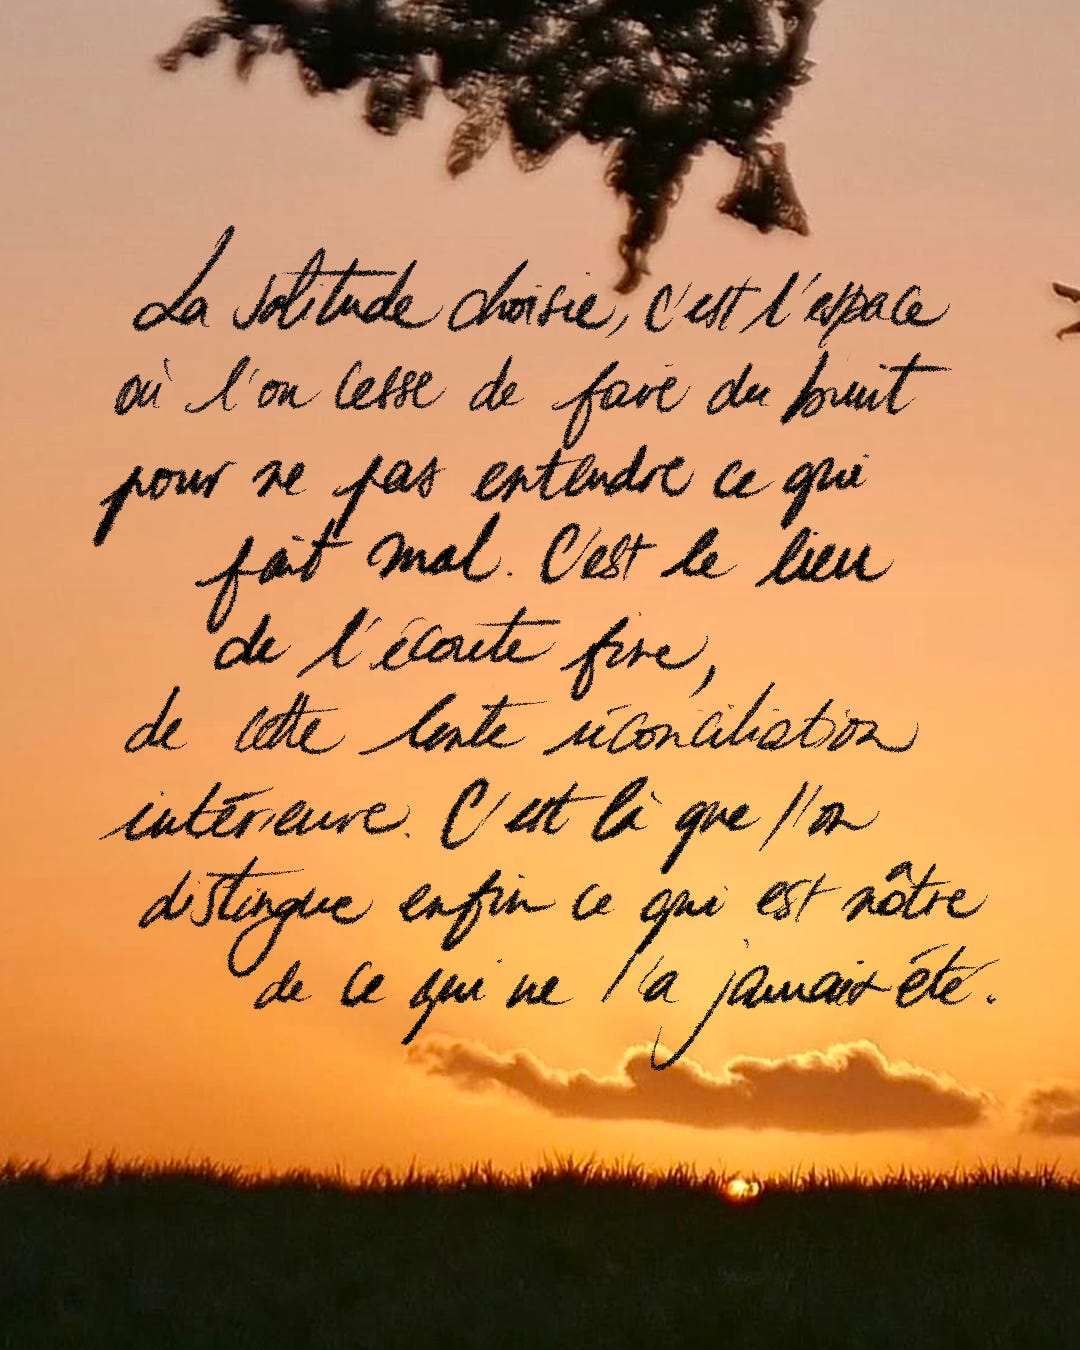 La solitude choisie, c'est l'espace
où l'on cesse de faire du bruit
pour ne pas entendre ce qui
fait mal. C'est le lieu
de l'écoute fine,
de cette lente réconciliation
intérieure. C'est là que l'on
distingue enfin ce qui est nôtre
de ce qui ne l'a jamais été.